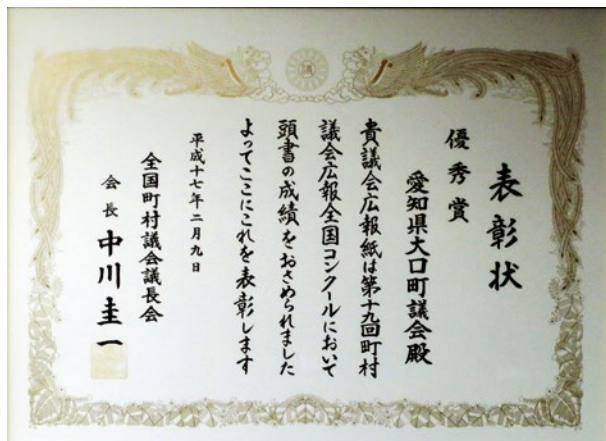 表彰状
優秀賞
愛知県大口町議会殿
貴議会広報紙は第十九回町村
議会広報全国コンクールにおいて
頭書の成績をおさめられました
よってここにこれを表彰します
平成十七年二月九日
全国町村議会議長会
会長 中川圭一